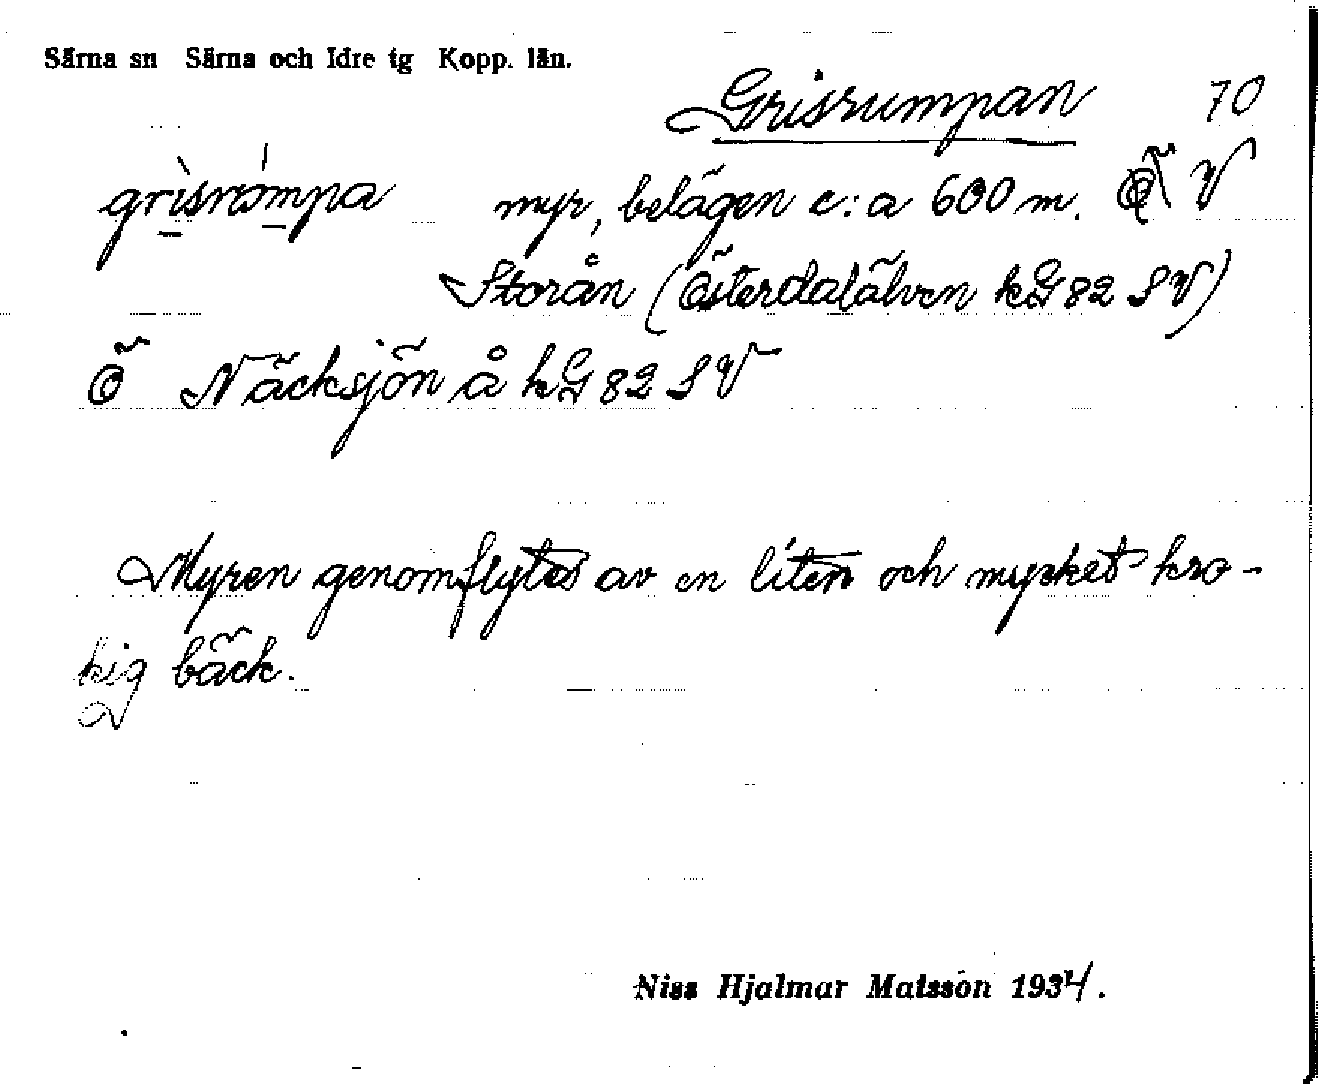 Särna sn Särna och Idre tg Kopp. län.
Grisrumpan 70
grìsrómpa myr, belägen c:a 600 m. V
Storån (Österdalälven kG 82 SV)
Ö Näcksjön å kG 82 SV
Myren genomflytes av en liten och mycket kro-
kig bäck.
Niss Hjalmar Matsson 1934.